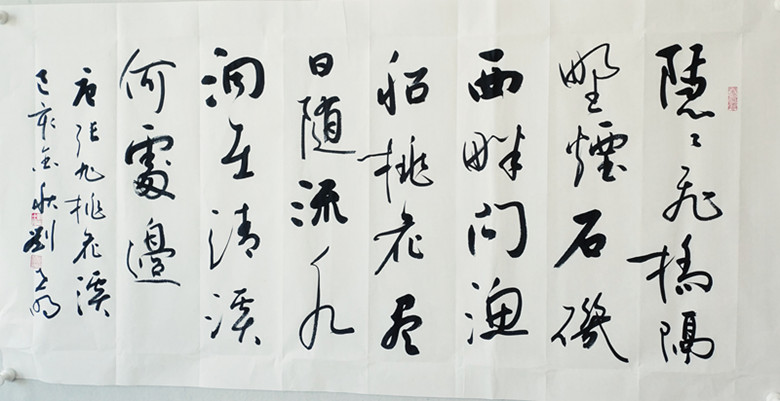 隱々飛橋隔
野煙石磯
西畔问漁
船桃花盡
日随流水
洞在清溪
何處邊
唐张旭桃花溪
己亥金秋劉